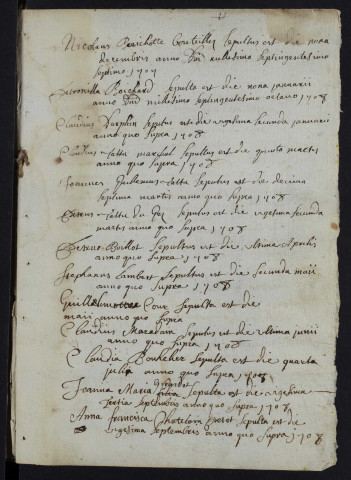 Nicolaus Boichotte Sepultus est die nona
decembris anno Dni millesimo Septingentesimo
Septimo 1707
Petronilla Boichard Sepulta est die nona januarii
anno Dni millesimo Septingentesimo octavo 1708
Claudius Sepultus est die vigesima Secunda januarii
anno quo Supra 1708
Claudius Sepultus est die quinta martis
anno quo Supra 1708
Joannes Sepultus est die decima
Septima martis anno quo Supra 1708
Sepultus est die vigesima Secunda
martis anno quo Supra 1708
Boillot Sepultus est die Ultima Aprilis
anno quo Supra 1708
Stephanus Lambert Sepultus est die Secunda maii
anno quo Supra 1708
Cour Sepulta est die
maii anno quo Supra
Claudius Sepultus est die Ultima junii
anno quo Supra 1708
Claudia Boucher Sepulta est die quarta
julii anno quo Supra 1708
Jeanna Maria Sepulta est die vigesima
tertia Septembris anno quo Supra 1708
Anna francisca Sepulta est die
vigesima Septembris anno quo Supra 1708